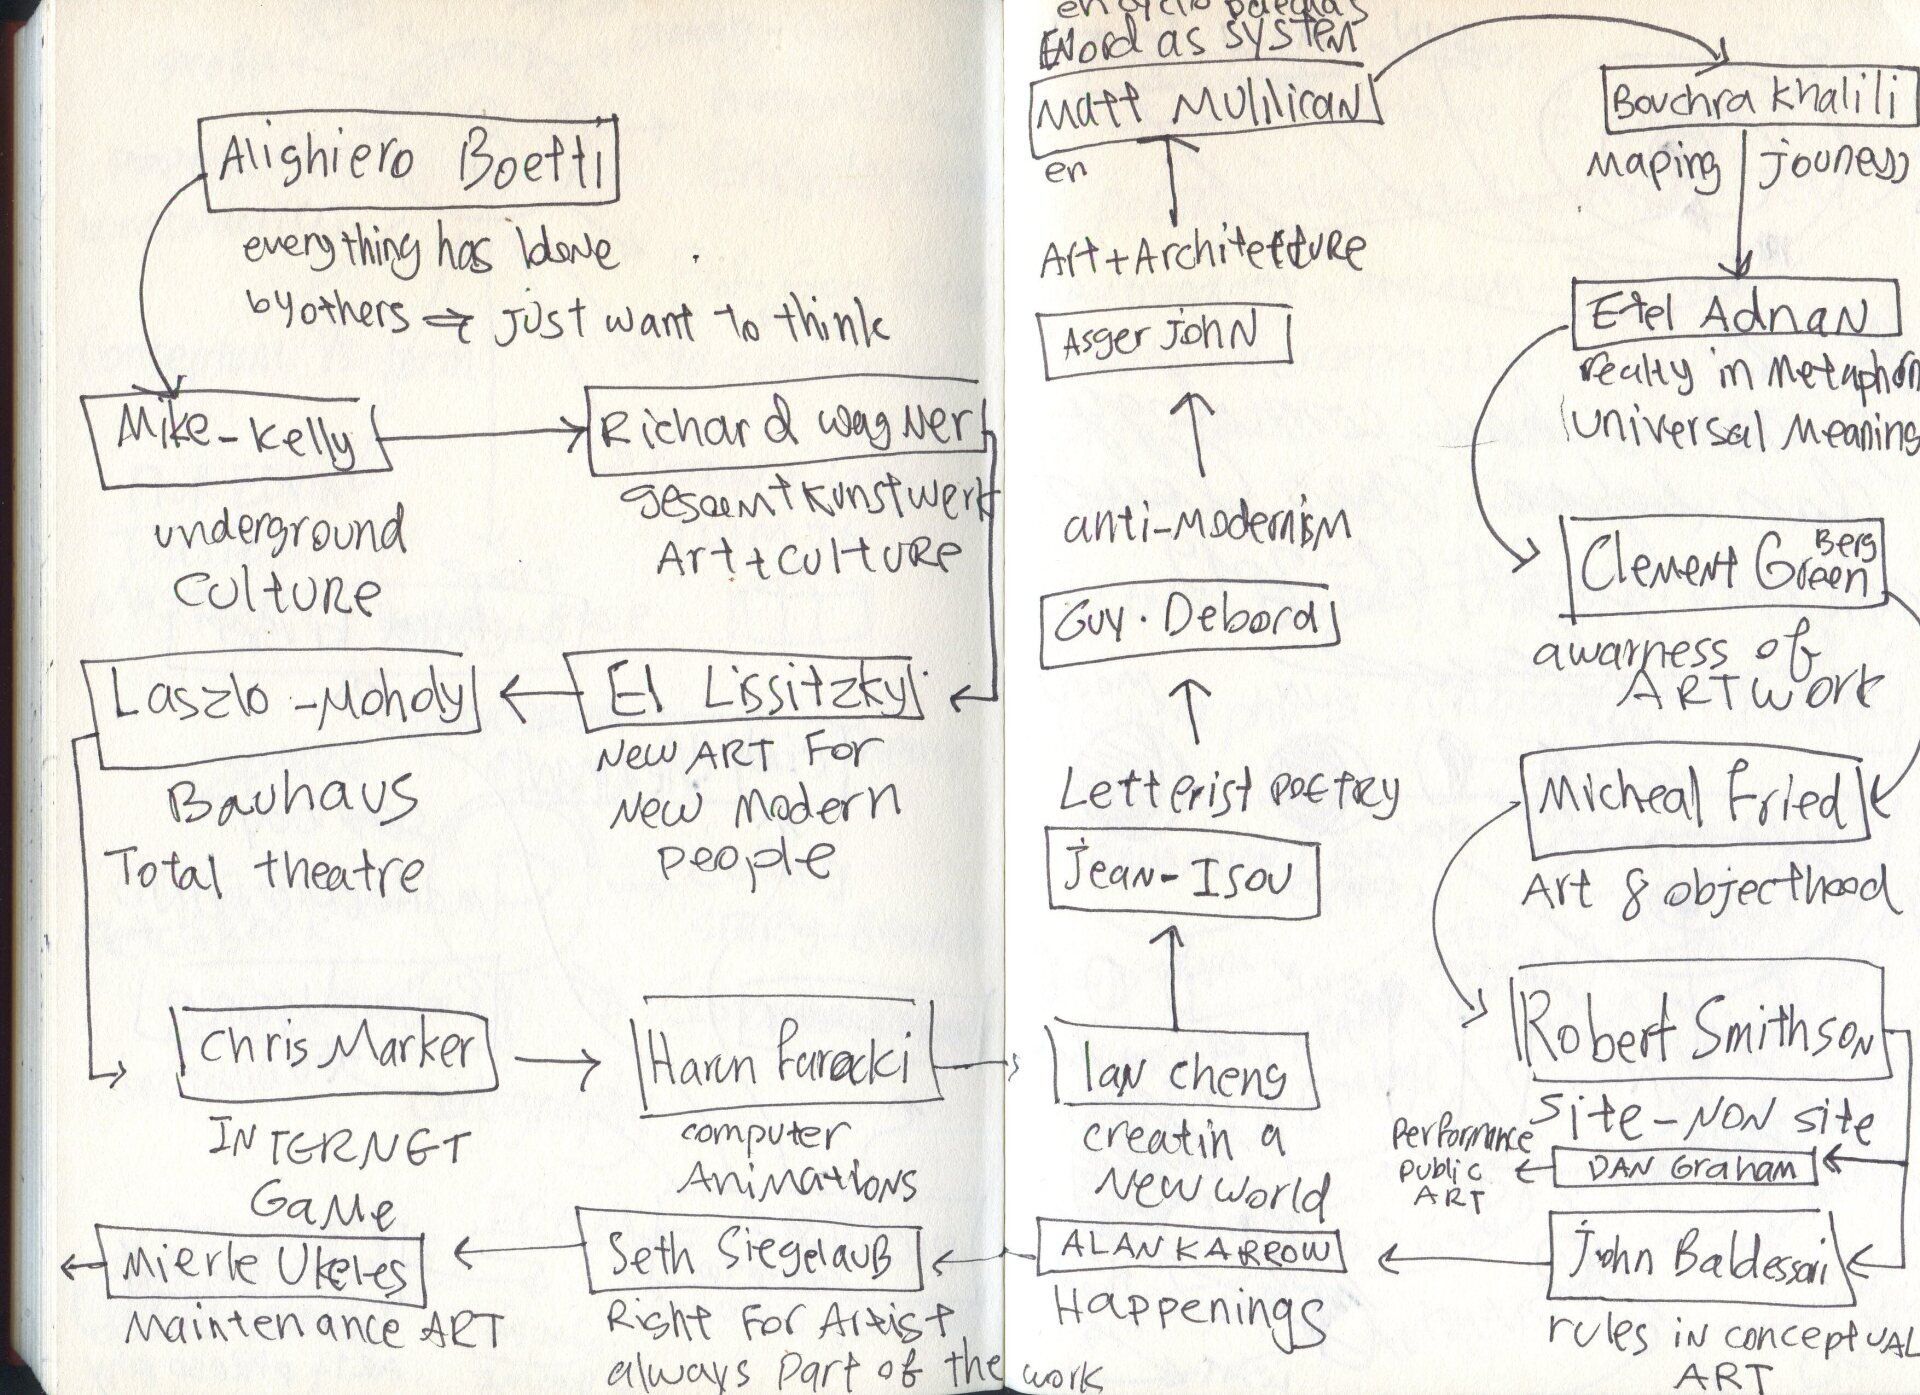 Alighiero Boetti
everything has bdone
by others ⇒ just want to think
Mike-Kelly
underground
culture
Richard Wagner
gesamtkunstwerk
Art + culture
El Lissitzky
New ART For
New Modern
people
Laszlo-Moholy
Bauhaus
Total theatre
Chris Marker
INTERNET
Game
Harun Farocki
computer
Animations
Mierle Ukeles
Maintenance ART
Seth Siegelaub
Right For Artist
always part of the work
encyclopaedias
as system
Matt Mulilican
en
Art + Architetture
Asger John
anti-Modernism
Guy. Debord
Letterist poetry
Jean-Isou
Ian Cheng
creatin a
New world
ALAN KARROW
Happenings
Bouchra Khalili
Maping jouness
Etel Adnan
realty in Metaphor
universal Meaning
Clement Green
Berg
awarness of
ARTwork
Micheal Fried
Art & objecthood
Robert Smithson
Site-NON site
DAN Graham
Performance
public
ART
John Baldessari
rules in conceptual
ART